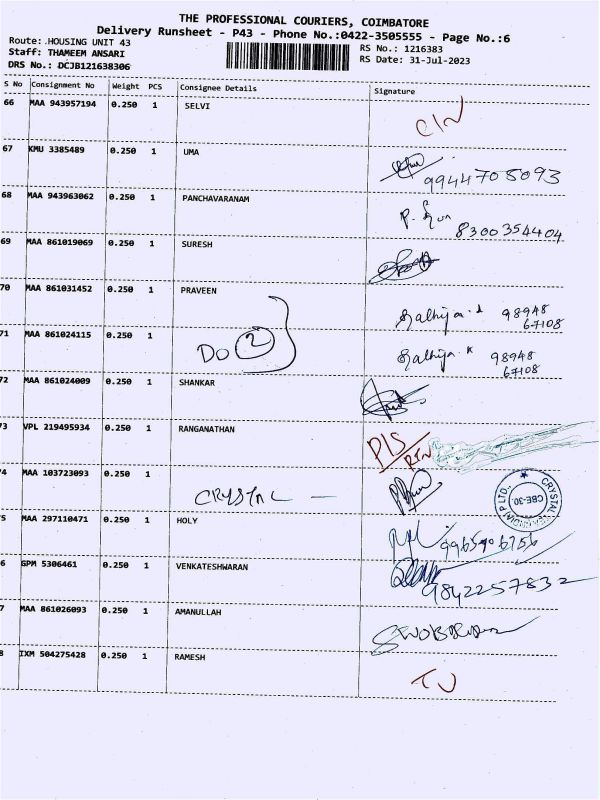 THE PROFESSIONAL COURIERS, COIMBATORE
Delivery Runsheet - P43 - Phone No.:0422-3505555 - Page No.:6
Route: HOUSING UNIT 43
RS No.: 1216383
Staff: THAMEEM ANSARI
RS Date: 31-Jul-2023
DRS No.: DCJB121638306
S No Consignment No Weight PCS Consignee Details Signature
66 MAA 943957194 0.250 1 SELVI
67 KMU 3385489 0.250 1 UMA 9944705093
68 MAA 943963062 0.250 1 PANCHAVARANAM 8300354404
69 MAA 861019069 0.250 1 SURESH
70 MAA 861031452 0.250 1 PRAVEEN 98948
67108
71 MAA 861024115 0.250 1 DO 2 98948
67108
72 MAA 861024009 0.250 1 SHANKAR
73 VPL 219495934 0.250 1 RANGANATHAN PIS
RTN
4 MAA 103723093 0.250 1 CRYSTAL CRYSTAL CBE-30. P LTD.
5 MAA 297110471 0.250 1 HOLY
6 GPM 5306461 0.250 1 VENKATESHWARAN 9842257832
7 MAA 861026093 0.250 1 AMANULLAH
8 IXM 504275428 0.250 1 RAMESH